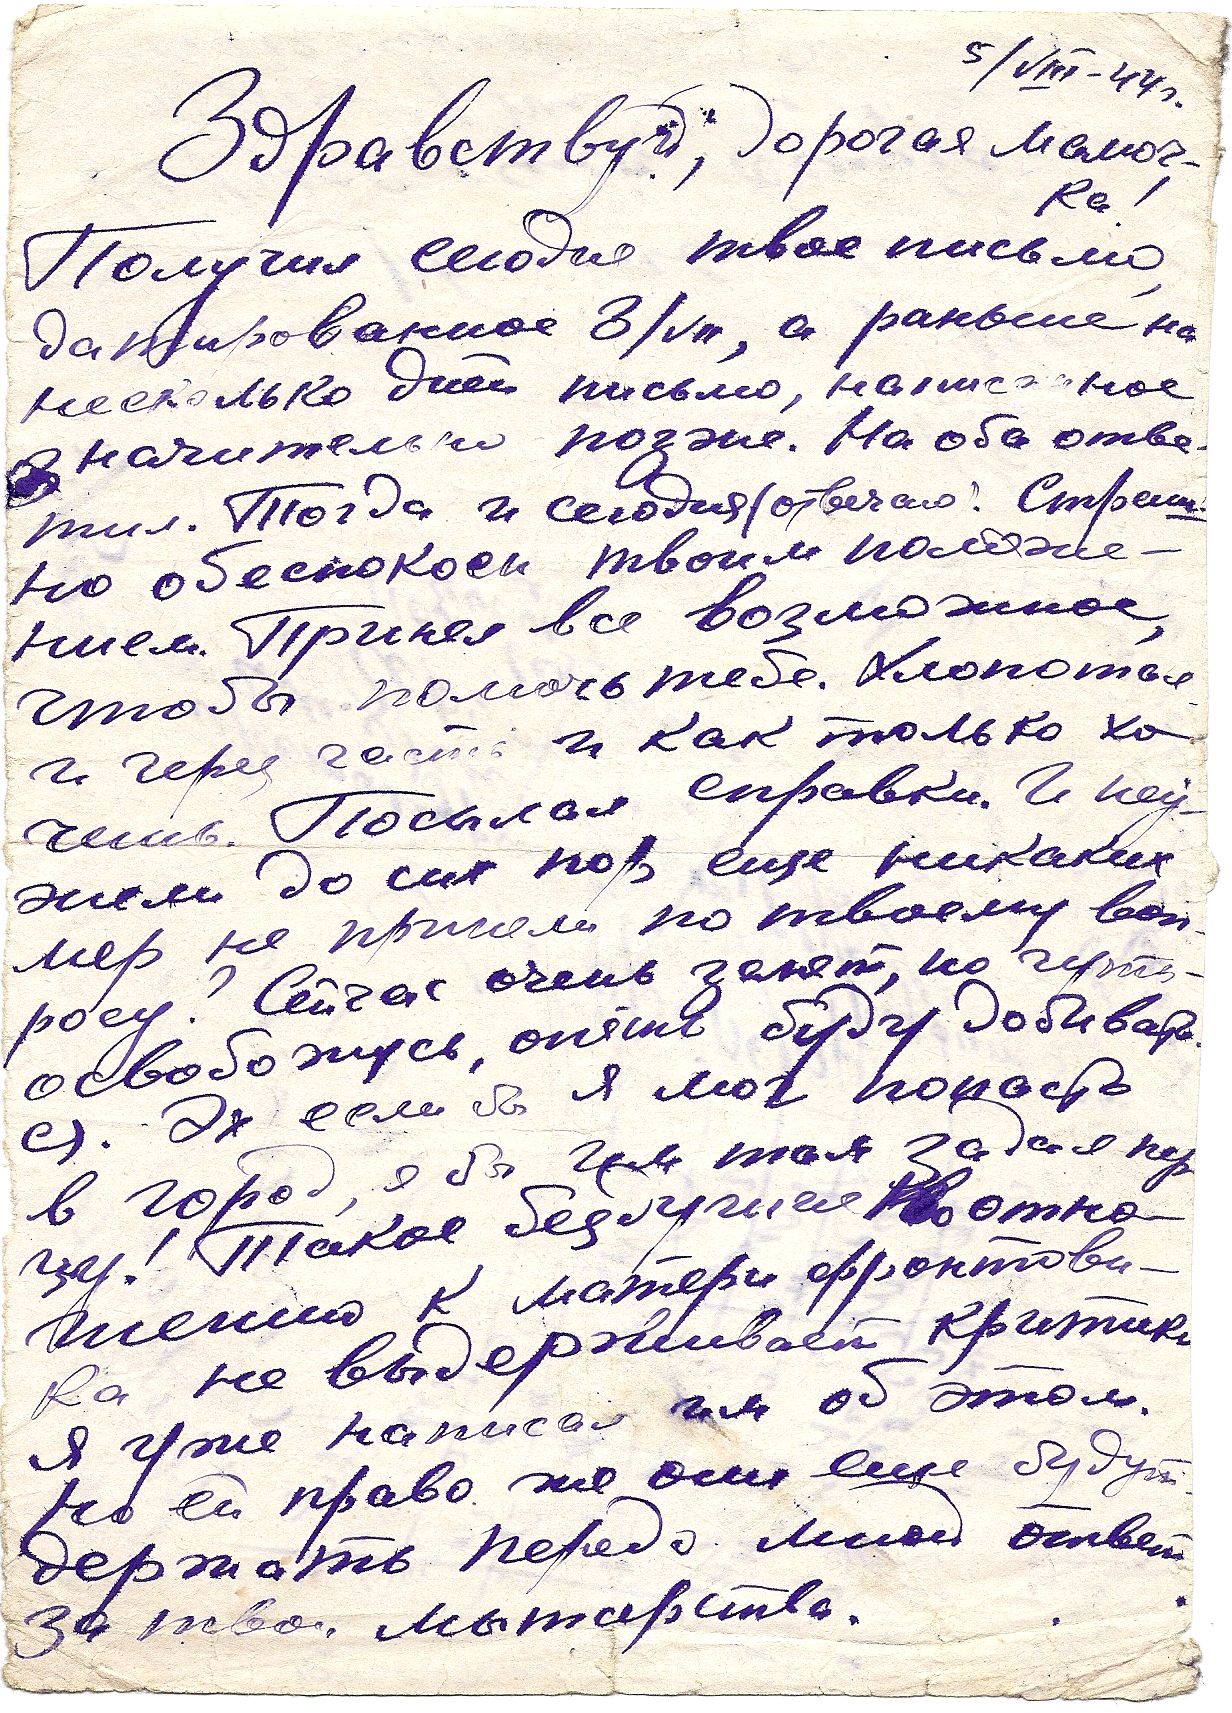 5/VIII-44г.
Здравствуй, дорогая мамоч-
ка!
Получил сегодня твое письмо,
датированное 3/VII, а раньше на
несколько дней письмо, написанное
значительно позже. На оба отве-
тил. Тогда и сегодня (отвечаю). Страш-
но обеспокоен твоим положе-
нием. Принял все возможное,
чтобы помочь тебе. Хлопотал
и через часть и как только хо-
чешь. Посылал справки. И неу-
жели до сих пор еще никаких
мер не приняли по твоему воп-
росу? Сейчас очень занят, но чуть
освобожусь, опять буду добивать-
ся. Эх если бы я мог попасть
в город, я бы им там задал пер-
цу! Такое бездушие по отно-
шению к матери фронтови-
ка не выдерживает критики
Я уже написал им об этом.
Но ей право же они еще будут
держать передо мной ответ
за твои мытарства.